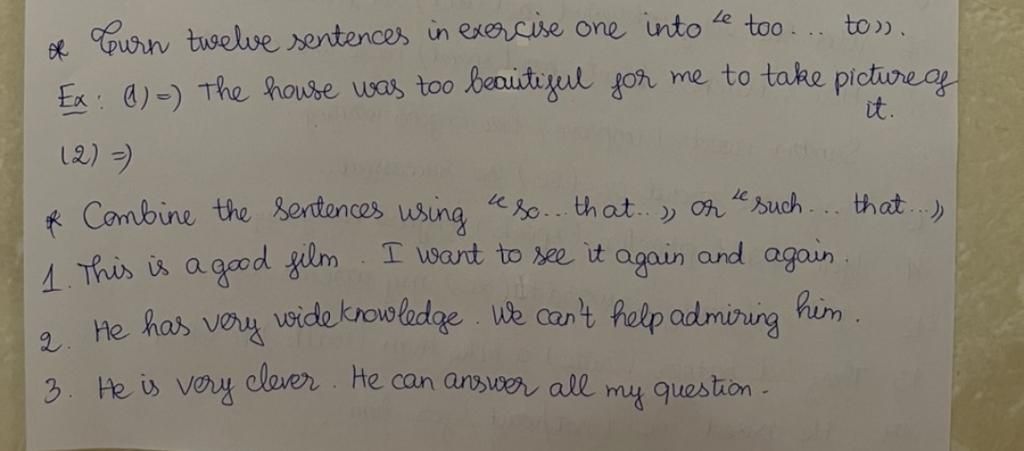 * Turn twelve sentences in exercise one into " too... to".
Ex: (1) => The house was too beautiful for me to take picture of
it.
(2) =>
* Combine the sentences using "so... that..." or "such... that..."
1. This is a good film. I want to see it again and again.
2. He has very wide knowledge. We can't help admiring him.
3. He is very clever. He can answer all my question.